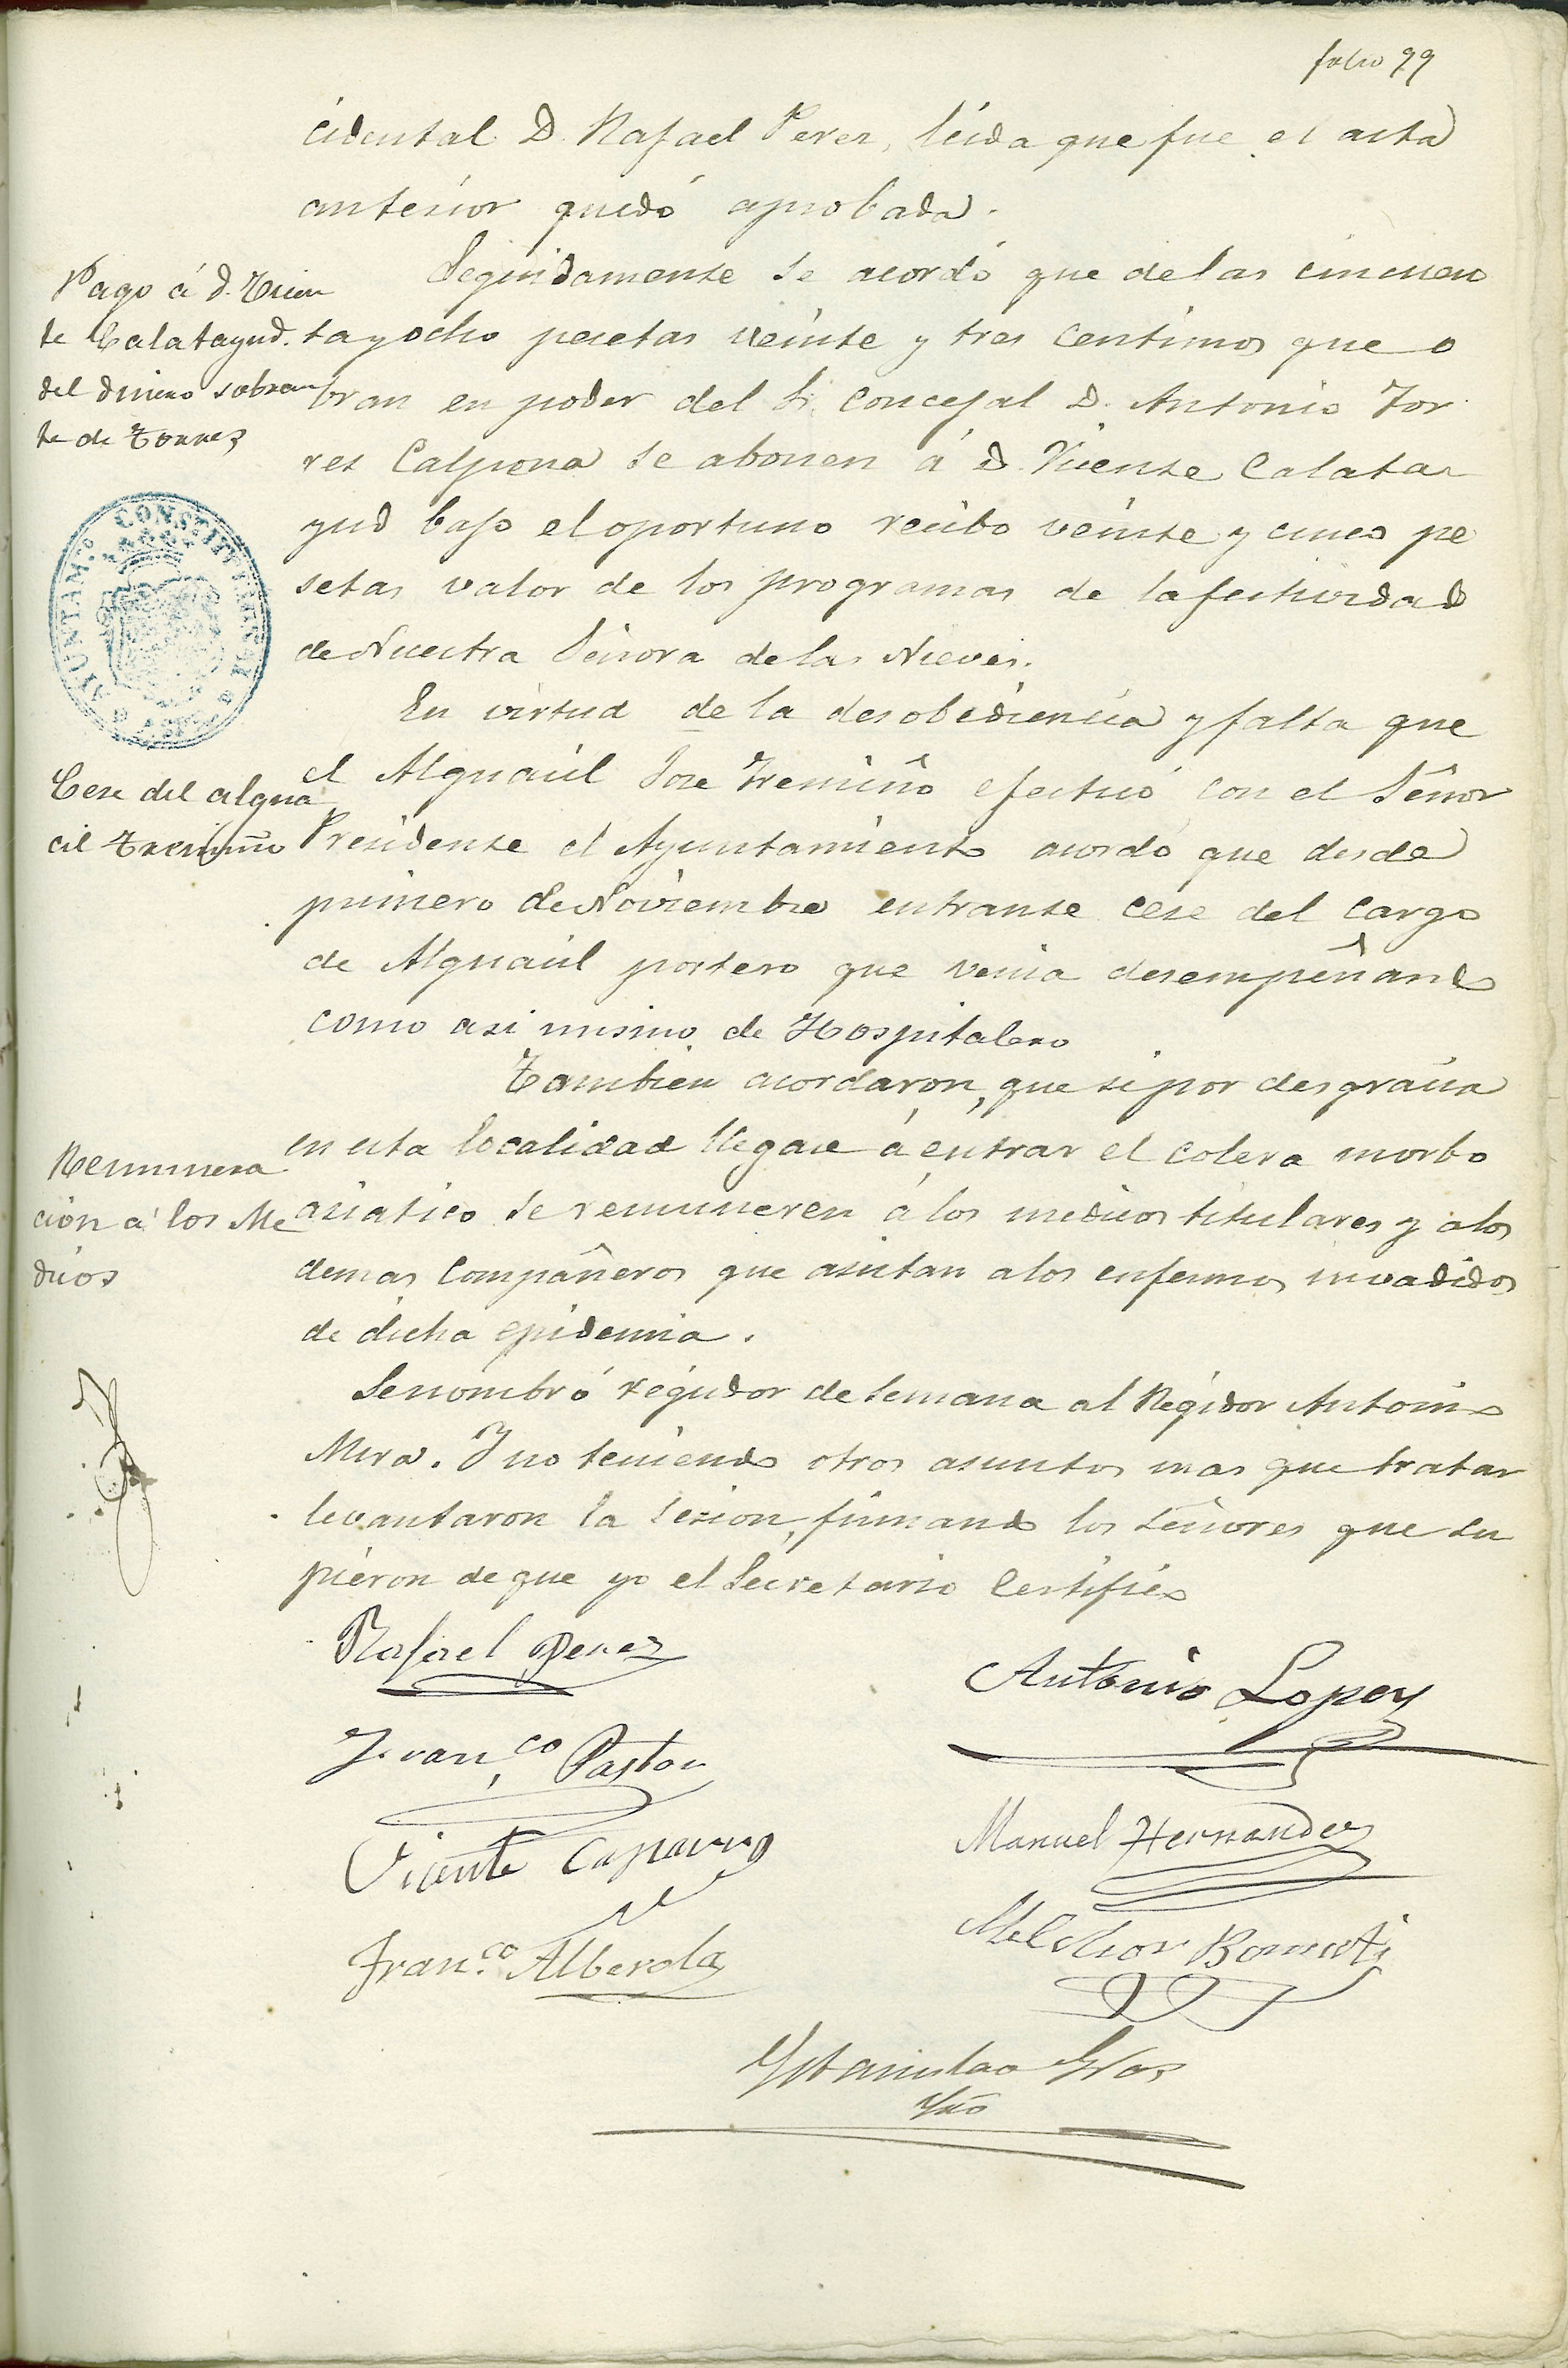 folio 99
cidental D. Rafael Perez, leida que fue el acta
anterior quedó aprobada.
Pago á D. Vicen
te Calatayud.
del dinero sobran
te de Torres
Seguidamente se acordó que de las cincuen
ta y ocho pesetas veinte y tres centimos que o
bran en poder del Sr. Concejal D. Antonio Tor
res Calpena se abonen á D. Vicente Calata
yud bajo el oportuno recibo veinte y cinco pe
setas valor de los programas de la festividad
de Nuestra Señora de las Nieves.
AYUNTAM.TO CONSTITUCIONAL D ASPE
Cese del algua
cil Tremiño
En virtud de la desobediencia y falta que
el Alguacil Jose Tremiño efectuó con el Señor
Presidente el Ayuntamiento acordó que desde
primero de Noviembre entrante cese del cargo
de Alguacil portero que venia desempeñando
como asi mismo de Hospitalero
Remunera
ción á los Me
dicos
Tambien acordaron, que si por desgracia
en esta localidad llegase á entrar el colera morbo
asiatico se remuneren á los medicos titulares y a los
demas Compañeros que asistan a los enfermos invadidos
de dicha epidemia.
Se nombró regidor de semana al Regidor Antonio
Mira. Y no teniendo otros asuntos mas que tratar
levantaron la sesion, firmando los señores que su
pieron de que yo el Secretario Certifico
Rafael Perez
Antonio Lopez
Fran.co Pastor
Manuel Hernandez
Vicente Caparros
Melchor Bonmati
Fran.co Alberola
Ystanislao Gras
Srio